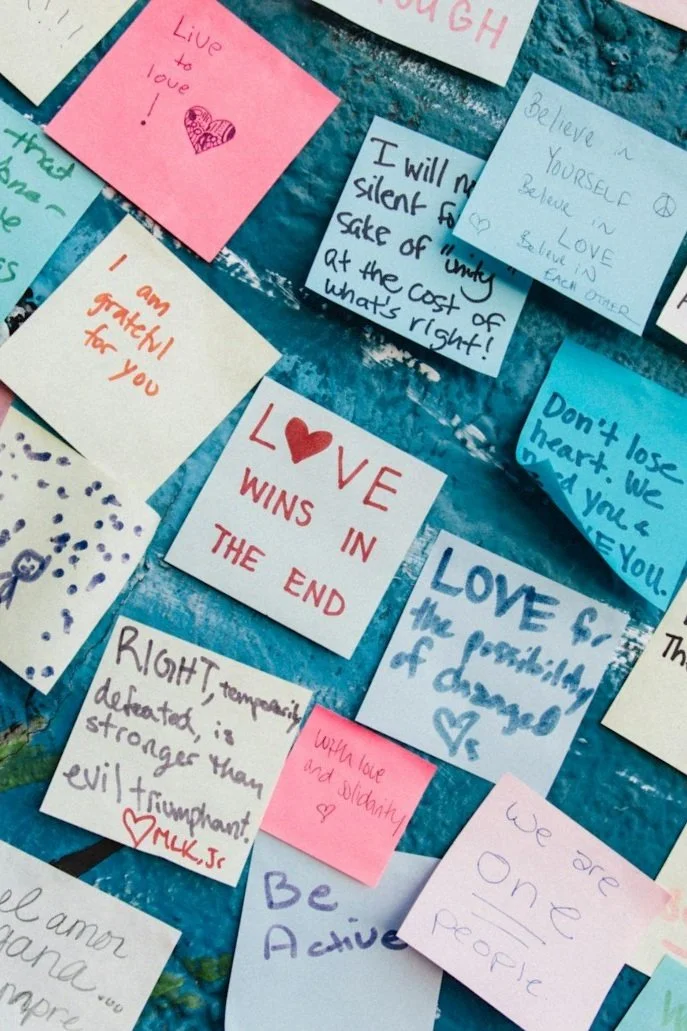 !!!
OUGH
Live
to
love
!
that
Believe in
YOURSELF
Believe in
LOVE
Believe in
EACH OTHER
I will
silent
sake of "unity"
at the cost of
what's right!
I am
grateful
for you
Don't lose
heart. We
you
YOU.
LOVE
WINS IN
THE END
LOVE for
the possibility
of changed
s
RIGHT, temporarily
defeated, is
stronger than
evil triumphant.
MLK, Jr
With love
and solidarity
Be
Active
We are
one
people
el amor
gana...
mpre
Th